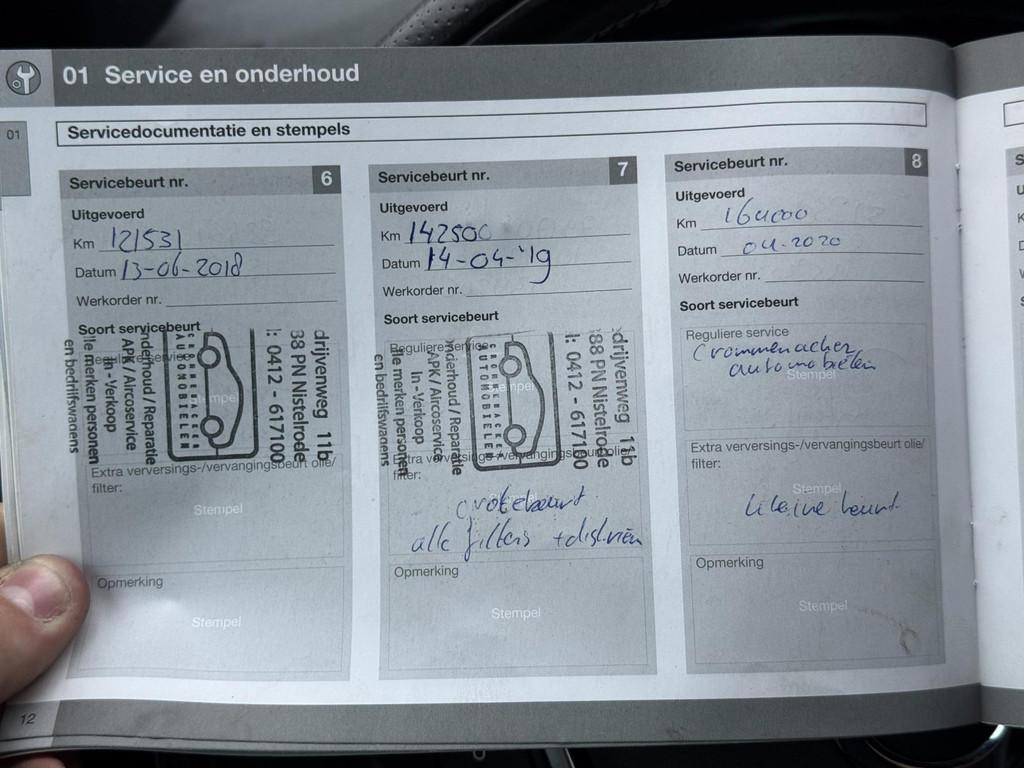 01 Service en onderhoud
01
Servicedocumentatie en stempels
Servicebeurt nr. 6
Uitgevoerd
Km 121531
Datum 13-06-2018
Werkorder nr.
Soort servicebeurt
Reguliere service
Stempel
drijvenweg 11b
38 PN Nistelrode
l: 0412 - 617100
CROMMENACKER
AUTOMOBIELEN
nderhoud / Reparatie
APK / Aircoservice
In -- Verkoop
lle merken personen
en bedrijfswagens
Extra verversings-/vervangingsbeurt olie/
filter:
Stempel
Opmerking
Stempel
Servicebeurt nr. 7
Uitgevoerd
Km 142500
Datum 14-04-'19
Werkorder nr.
Soort servicebeurt
Reguliere service
Stempel
drijvenweg 11b
88 PN Nistelrode
l: 0412 - 617100
CROMMENACKER
AUTOMOBIELEN
nderhoud / Reparatie
APK / Aircoservice
In -- Verkoop
lle merken personen
en bedrijfswagens
Extra verversings-/vervangingsbeurt olie/
filter:
Stempel
grotebeurt
alle filters + distr.riem
Opmerking
Stempel
Servicebeurt nr. 8
Uitgevoerd
Km 164000
Datum 04-2020
Werkorder nr.
Soort servicebeurt
Reguliere service
Crommenacker
automobielen
Stempel
Extra verversings-/vervangingsbeurt olie/
filter:
Stempel
kleine beurt
Opmerking
Stempel
12